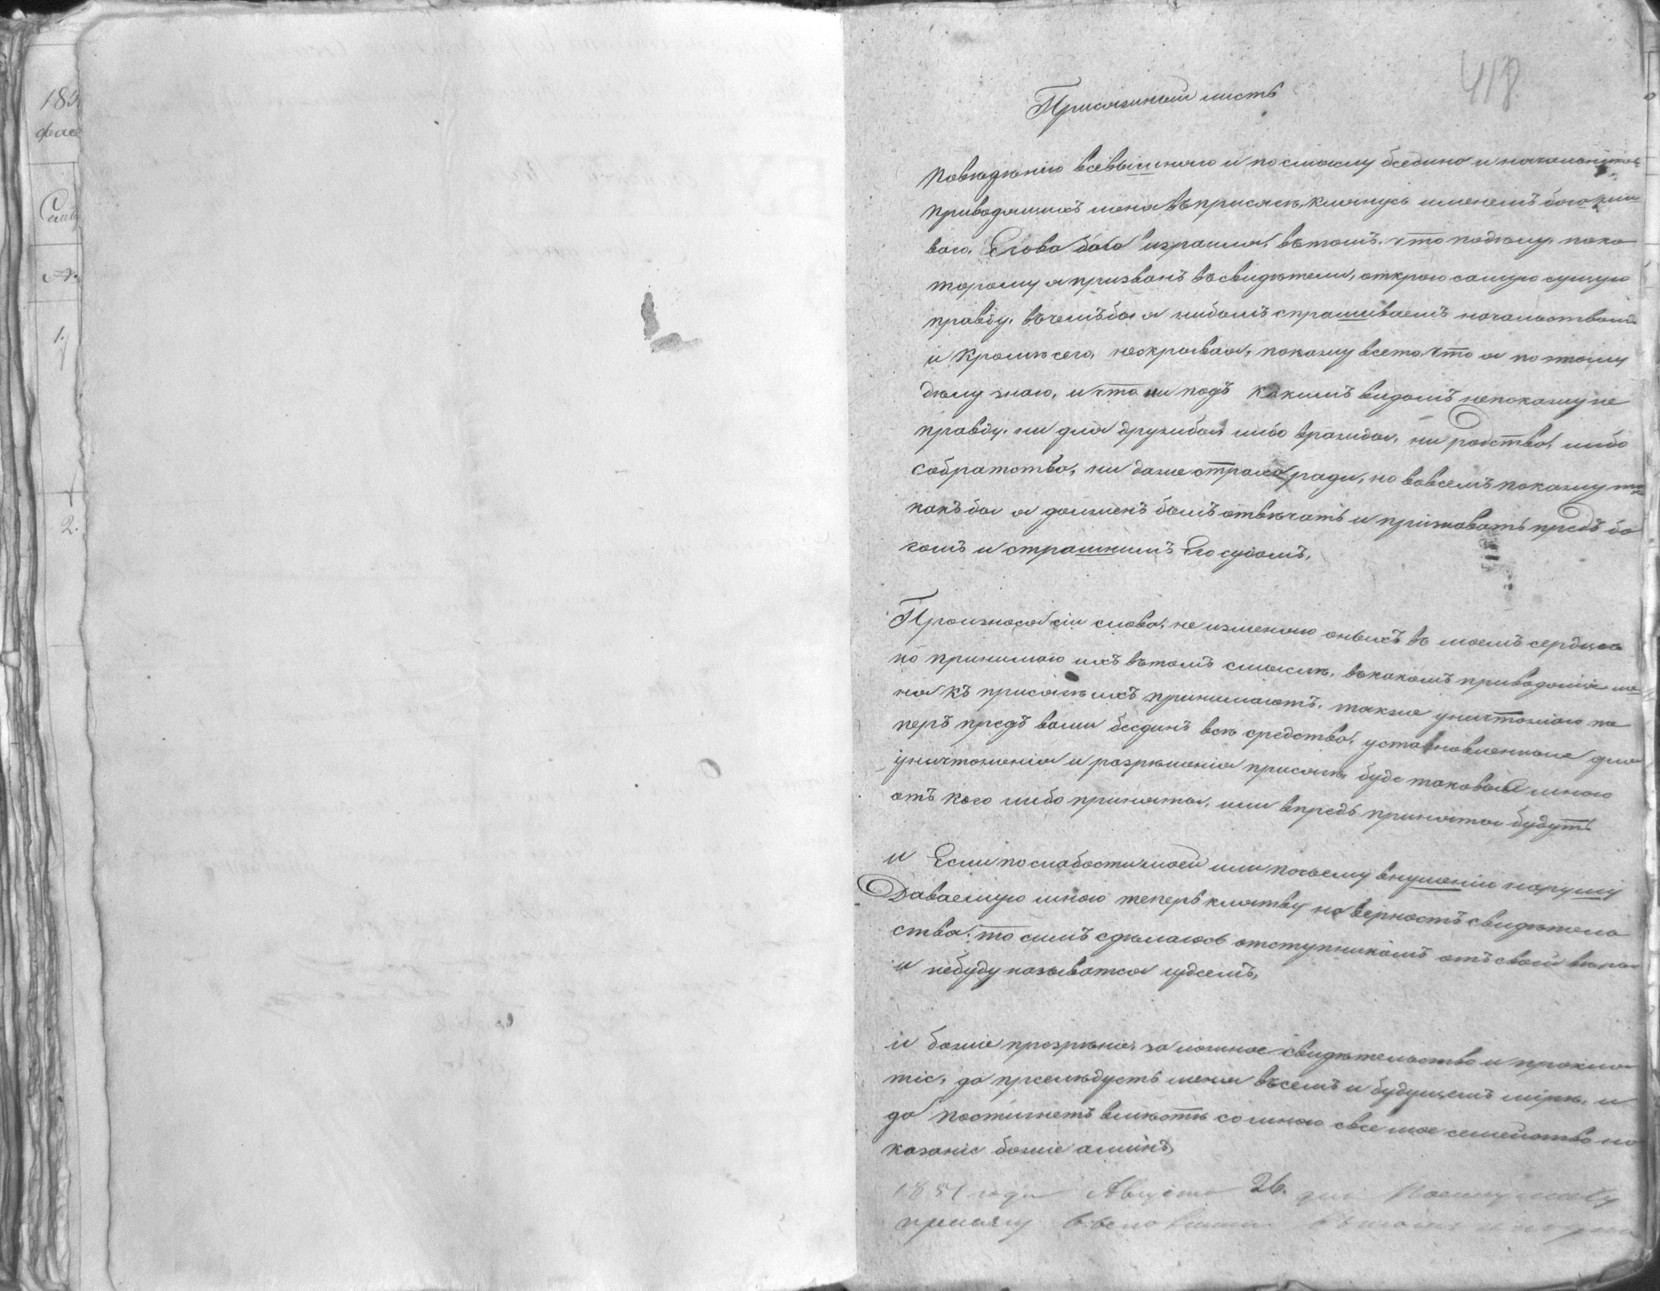 185
Фев
1.
2.
418
Присяжный листъ
Повелѣнію всевышняго и по смыслу бседина и начальников
приводящихъ меня въ присягѣ, клянусь именемъ бога жи
ваго, Егова бога израиля, въ томъ, что подѣлу, пока
торому я призванъ въ свидѣтели, открою самую сущую
правду, въ чемъ бы я нибылъ спрашиваемъ начальствомъ
и кромѣ сего, нескрывая, покажу все то что я по этому
дѣлу знаю, и что ни подъ какимъ видомъ непокажу не
правду. ни для дружбы либо вражды, ни родства, либо
собратства, ни даже страха ради, но вовсемъ покажу та
какъ бы я долженъ былъ отвѣчать и признавать предъ бо
гомъ и страшнымъ Его судомъ.
Произнося сіи слова, не изменяю оныхъ въ моемъ сердце
но принимаю ихъ въ томъ смыслѣ, въ какомъ приводящіе ме
ня къ присягѣ ихъ принимаютъ. также уничтожаю те
перъ предъ вами бсединъ всѣ средства, установленные для
уничтоженія и разрѣшенія присяги, буде таковые мною
отъ кого либо приняты, или впредь приняты будутъ
и Если по слабости моей или по чьему внушенію нарушу
Даваемую мною теперь клятву на верность свидѣтель
ства, то симъ сдѣлаюсь отступникомъ отъ своей вѣры
и небуду называтся иудеемъ,
и божіе прозрѣніе, за ложное свидѣтельство и прокля
тіе, да преслѣдуетъ меня въ семъ и будущемъ мірѣ, и
да постигнетъ вмѣстѣ со мною все мое семейство на
казаніе божіе аминь
1851 года Августа 26. дня По сему листу
присягу